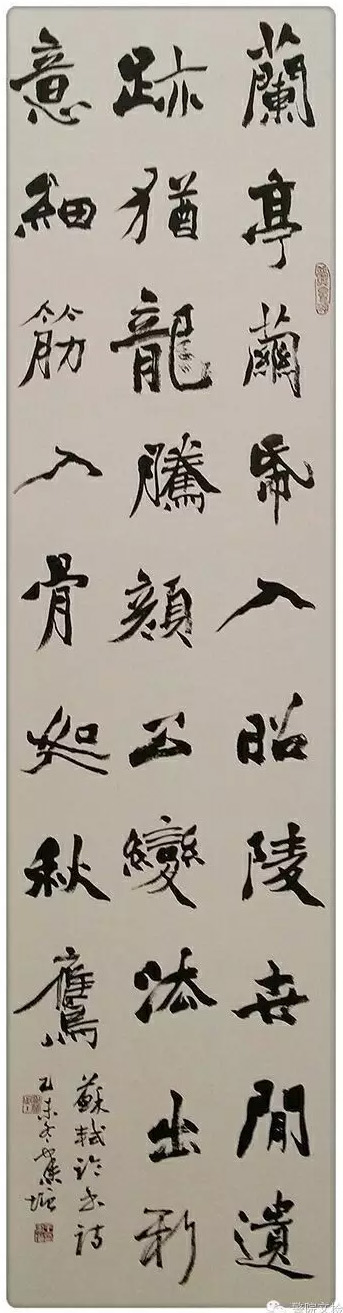 蘭亭繭帋入昭陵世閒遺
跡猶龍騰顏公變法出新
意細筋入骨如秋鷹
蘇軾論書詩
乙未冬